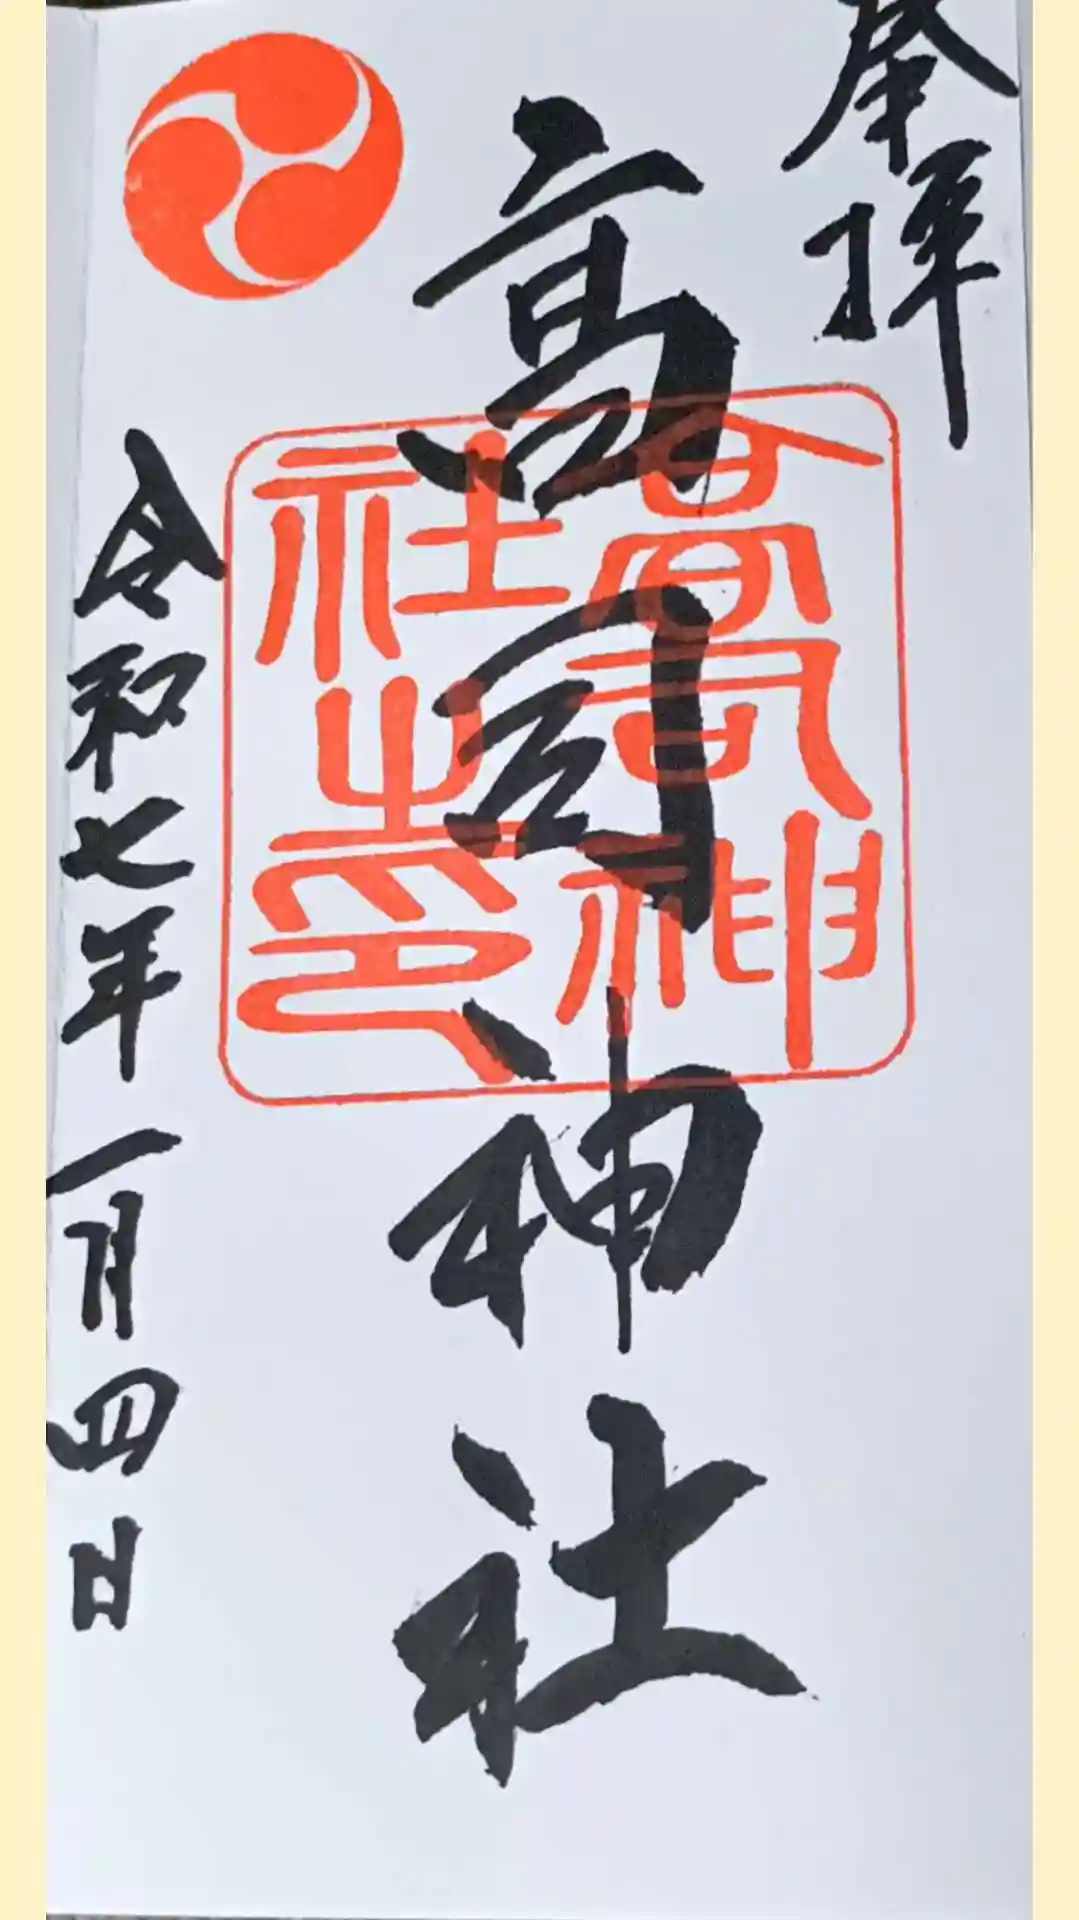 奉拝
高司神社
高司神社之印
令和七年一月四日